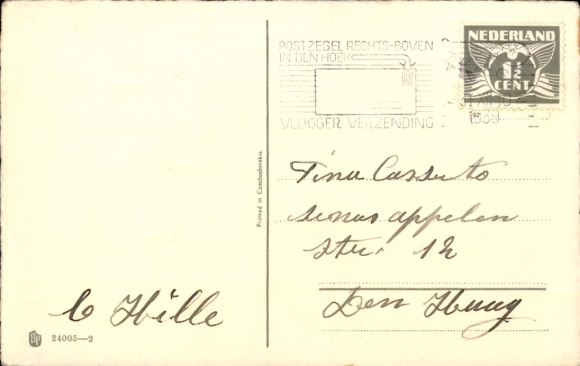 POSTZEGEL RECHTS-BOVEN
IN DEN HOEK
VLUGGER VERZENDING
NEDERLAND
1½
CENT
1939
Printed in Czechoslovakia
Tina Cassuto
appelen
str. 12
Den Haag
C Hille
24005—2